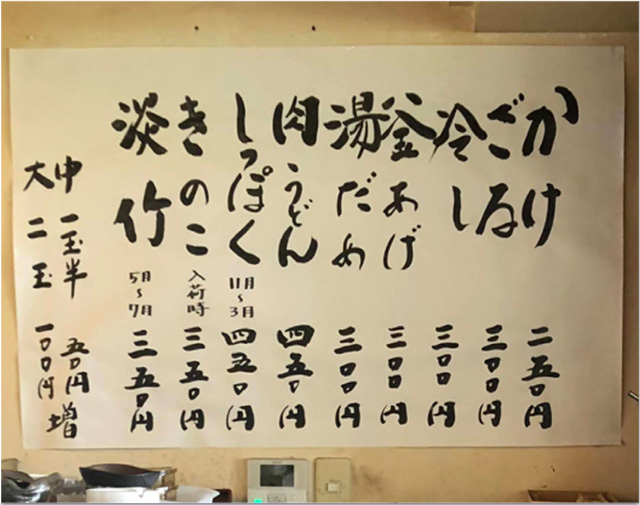 かけ 二五〇円
ざる 三〇〇円
冷し 三〇〇円
釜あげ 三〇〇円
湯だめ 三〇〇円
肉うどん 四五〇円
しっぽく 11月〜3月 四五〇円
きのこ 入荷時 三五〇円
淡竹 5月〜7月 三五〇円
中 一玉半 五〇円増
大 二玉 一〇〇円